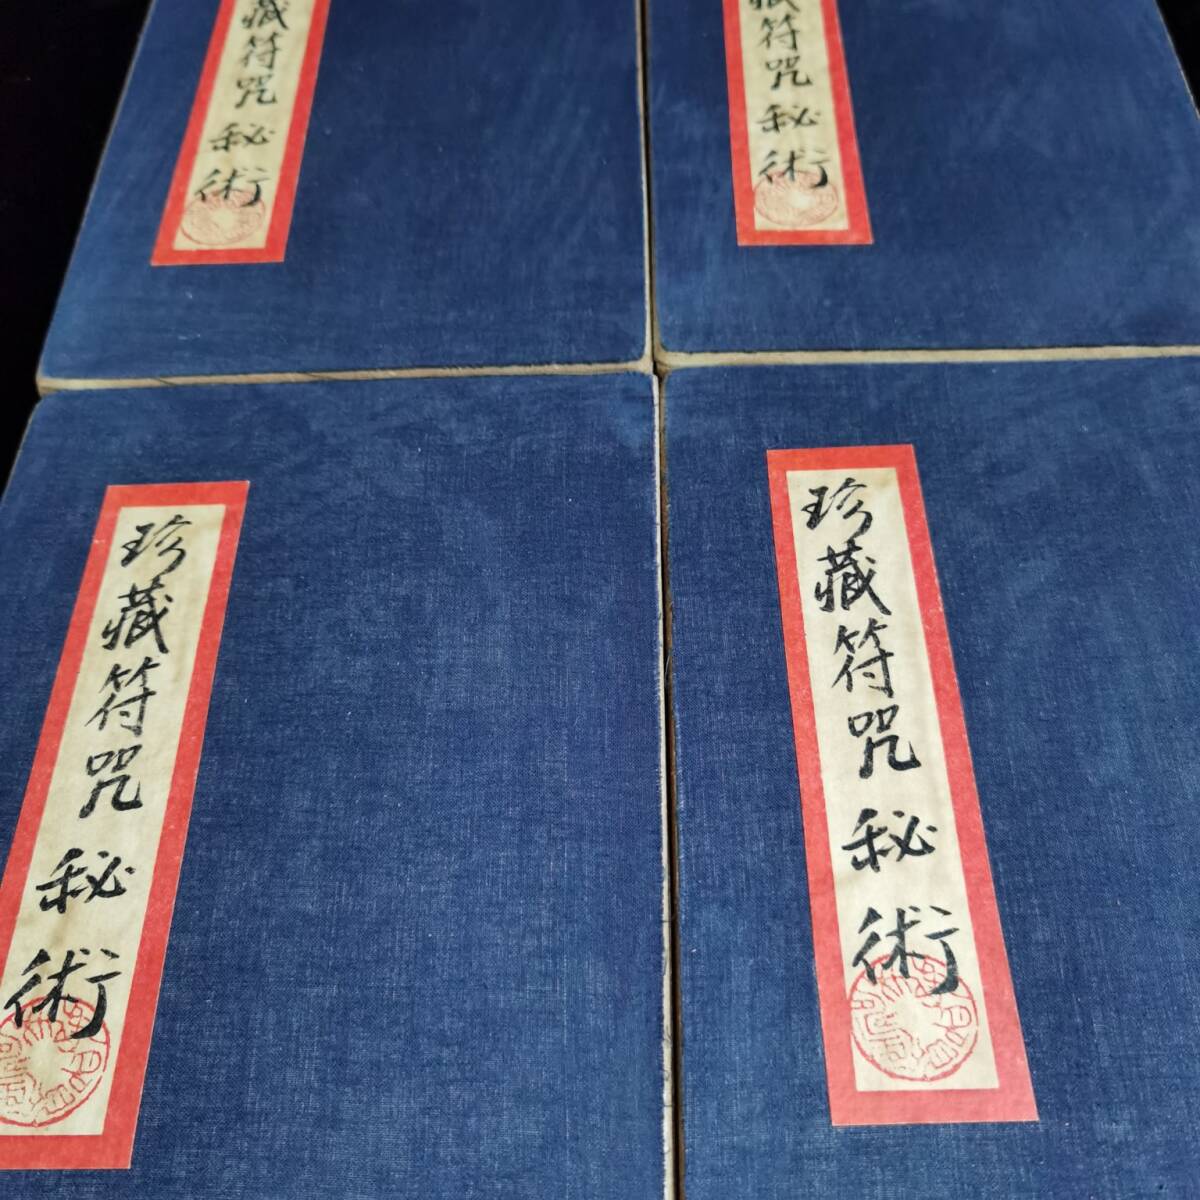 藏符咒秘術
藏符咒秘術
珍藏符咒秘術
珍藏符咒秘術